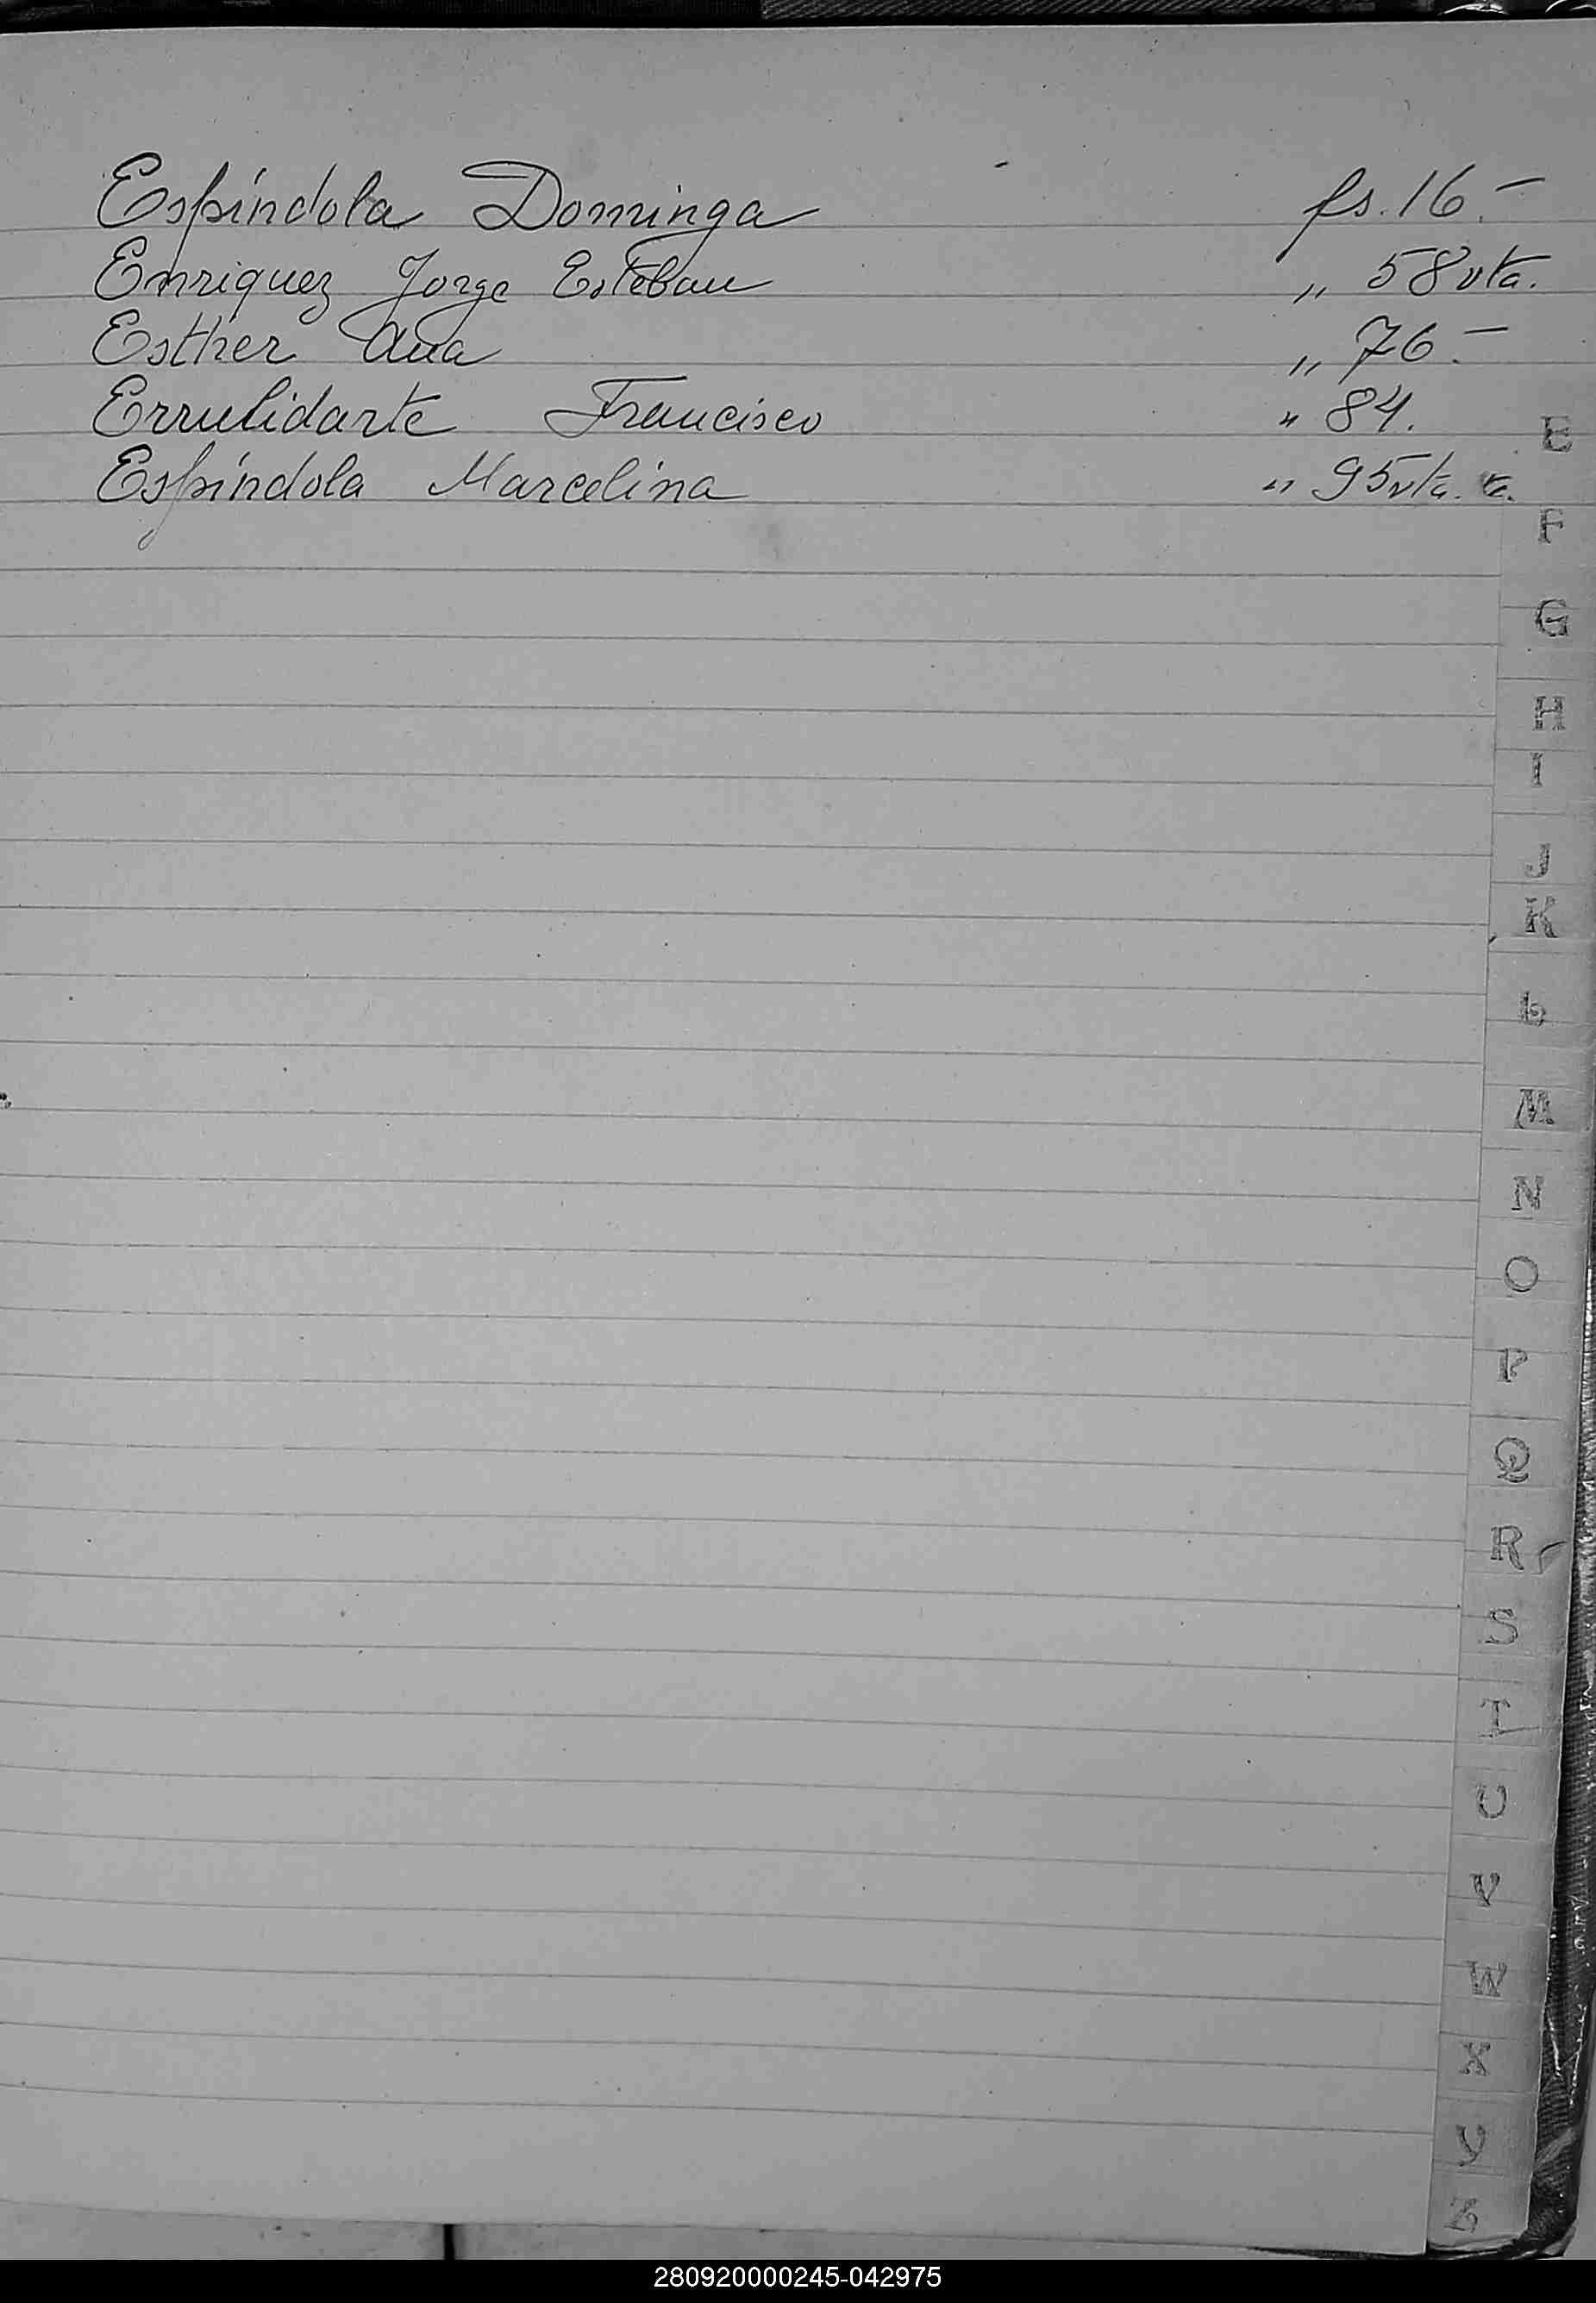 Espíndola Dominga fs. 16.-
Enriquez Jorge Esteban „ 58 vta.
Esther Ana „ 76.-
Errulidarte Francisco „ 84.
Espíndola Marcelina „ 95 vta.
E
F
G
H
I
J
K
L
M
N
O
P
Q
R
S
T
U
V
W
X
Y
Z
280920000245-042975